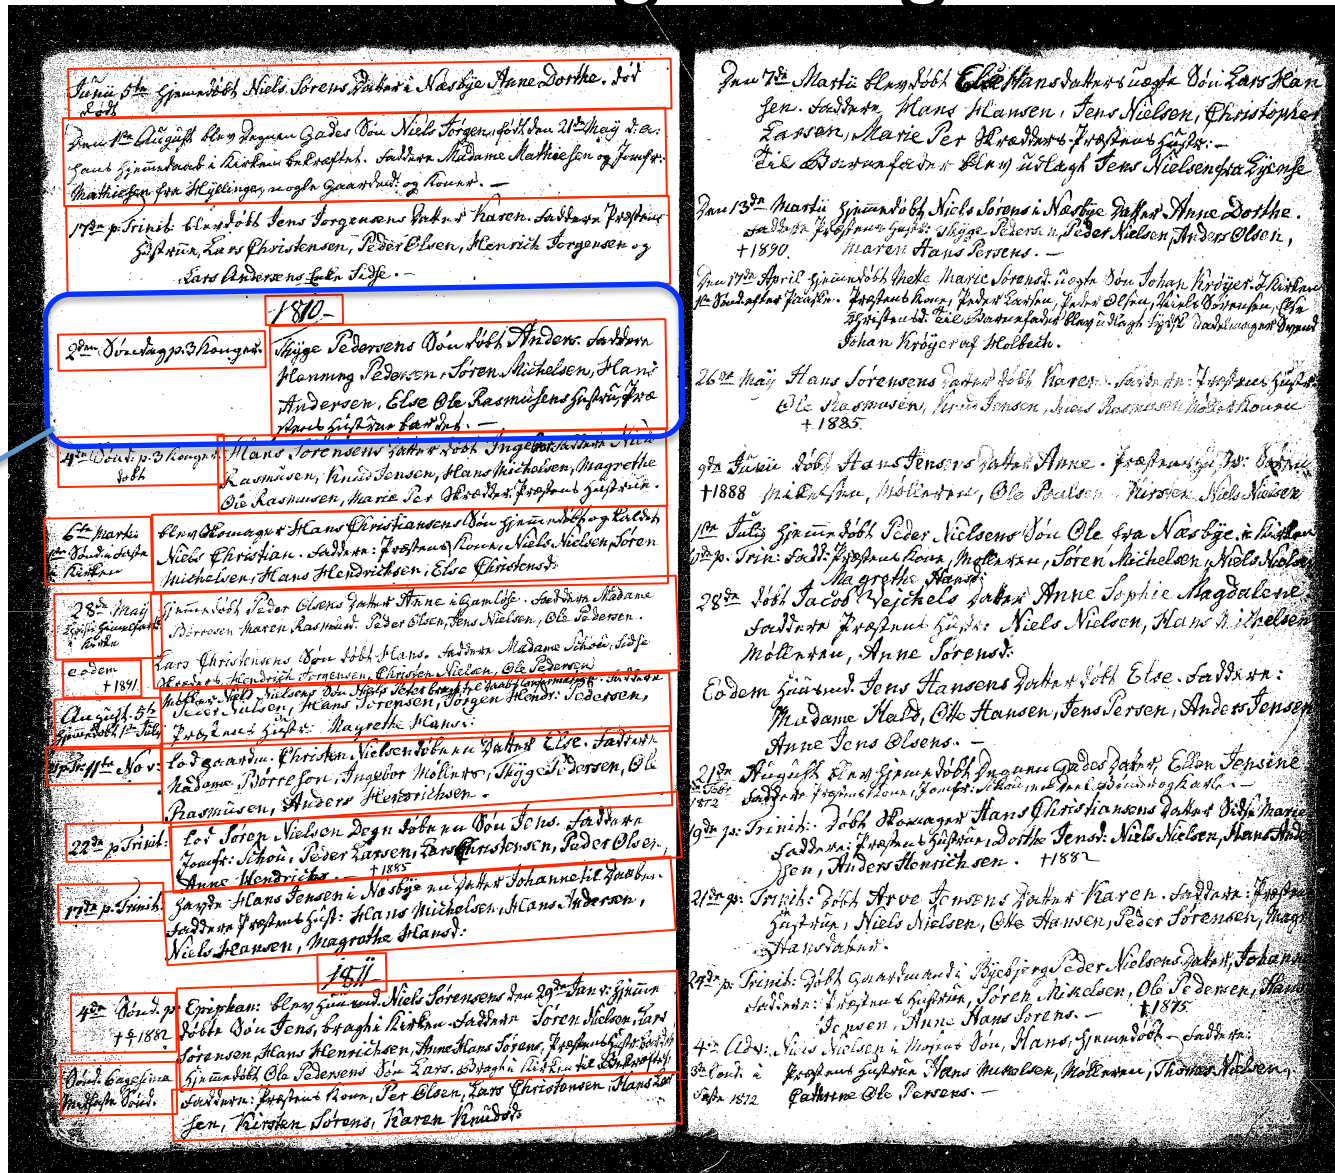 Junii 5te hjemmedøbt Niels Sørens Datter i Næsbye Anne Dorthe. død
døbt
Den 1ste August blev Degnen Gades Søn Niels Jørgen, født den 21de May d: a:
hans Hjemmedaab i Kirken bekræftet. Faddere Madame Mathiesen og Jomfr:
Mathiesen fra Hyllinge, nogle Gaardmd: og Koner. —
17de p. Trinit: blev døbt Jens Jørgensens Datter Karen. Faddere Præstens
Hustrue, Lars Christensen, Peder Olsen, Henrich Jørgensen og
Lars Andersens Enke Sidse. —
1810
2den Søndag p. 3 Konger.
Thyge Pedersens Søn døbt Anders. Faddere
Henning Pedersen, Søren Michelsen, Hans
Andersen, Else Ole Rasmusens Hustru, Præ
stens Hustrue bar det. —
4de Sønd: p. 3 Konger
døbt
Hans Sørensens Datter døbt Ingeborg Faddere Niels
Rasmusen, Knud Jensen, Hans Michelsen, Magrethe
Ole Rasmusen, Marie Per Skrædder, Præstens Hustrue.
6te Martii
Kirken
blev Skomager Hans Christiansens Søn hjemmedøbt og kaldet
Niels Christian. Faddere: Præstens Kone, Niels Nielsen, Søren
Michelsen, Hans Hendrichsen, Else Christensd:
28de May
Kirke
hjemmedøbt Peder Olsens Datter Anne i Gamløse. Faddere Madame
Børresen Maren Rasmusd: Peder Olsen, Jens Nielsen, Ole Pedersen.
eodem
†1891
Lars Christensens Søn døbt Hans. Faddere Madame Schou, Sidse
Hendrich Jørgensen, Christen Nielsen, Ole Pedersen
August. 5te
hjemmedøbt 1ste Juli
Niels Nielsens Søn Niels Peter Faddere
Peder Nielsen, Hans Sørensen, Jørgen Hendr: Pedersen,
Præstens Hustr: Magrethe Hansd:
11te Nov:
lod Gaardm. Christen Nielsen døbe en Datter Else. Faddere
Madame Børresen, Ingebor Møllers, Thyge Pedersen, Ole
Rasmusen, Anders Henrichsen.
22de p Trinit:
lod Søren Nielsen Degn døbe en Søn Jens. Faddere
Jomfr: Schou, Peder Larsen, Lars Christensen, Peder Olsen,
Anne Hendrichs. — †1885
17de p. Trinit:
havde Hans Jensen i Næsbye en Datter Johanne til Daaben.
Faddere Præstens Hustr: Hans Michelsen, Hans Andersen,
Niels Hansen, Magrethe Hansd:
1811
4de Sønd. p.
†1882
Epiphan: blev Huusmd. Niels Sørensens den 29de Janv: hjemme
døbte Søn Jens, bragt i Kirken. Faddere Søren Nielsen, Lars
Sørensen, Hans Henrichsen, Anne Hans Sørens, Præstens Hustr:
hjemmedøbt Ole Pedersens Søn Lars. Bragt i Kirken til Bekræftelse
Faddere: Præstens Kone, Per Olsen, Lars Christensen, Hans
sen, Kirsten Sørens, Karen Knudsd:
Den 7de Martii blev døbt Else Hansdatters uægte Søn Lars Han
sen. Faddere Hans Hansen, Jens Nielsen, Christopher
Larsen, Marie Per Skrædders, Præstens Hustr: —
Til Barnefader blev udlagt Jens Nielsen fra Lyenge
Den 13de Martii hjemmedøbt Niels Sørens i Næsbye Datter Anne Dorthe.
Faddere Præstens Hustr: Thyge Pedersen, Peder Nielsen, Anders Olsen,
†1890. Maren Hans Persens. —
Den 17de April hjemmedøbt Mette Marie Sørensd: uægte Søn Johan Krøyer. I Kirken
1ste Sønd. efter Paaske. Præstens Kone, Peder Larsen, Peder Olsen, Niels Sørensen, Else
Christensd: Til Barnefader blev udlagt Tydsk Sadelmager Svend
Johan Krøyer af Holbech.
26de May Hans Sørensens Datter døbt Karen. Faddere: Præstens Hustr:
Ole Rasmusen, Knud Jensen, Niels Rasmusen Møller Konen
†1885
9de Junii døbt Hans Jensens Datter Anne. Præstens Hustr: Søren
†1888 Mikelsen, Mølleren, Ole Poulsen, Kirsten Niels Nielsen
1ste Julii hjemmedøbt Peder Nielsens Søn Ole fra Næsbye, i Kirken
p. Trin: Fadd: Præstens Kone, Mølleren, Søren Michelsen, Niels Nielsen
Magrethe Hansd:
28de døbt Jacob Vejchels Datter Anne Sophie Magdalene
Faddere Præstens Hustr: Niels Nielsen, Hans Mikelsen
Mølleren, Anne Sørensd:
Eodem Huusmd. Jens Hansens Datter døbt Else. Faddere:
Madame Hald, Otte Hansen, Jens Persen, Anders Jensen
Anne Jens Olsens. —
21de August blev hjemmedøbt Degnen Gades Datter, Ellen Jensine
1872 Faddere Præstens Kone, Jomfr: Schou,
19de p: Trinit: døbt Skomager Hans Christiansens Datter Sidse Marie
Faddere: Præstens Hustrue, Dorthe Jensd: Niels Nielsen, Hans Ander
sen, Anders Henrichsen. †1882
21de p: Trinit: døbt Arve Jensens Datter Karen. Faddere: Præstens
Hustrue, Niels Nielsen, Otte Hansen, Peder Sørensen, Magr
Hansdatter.
24de p: Trinit: døbt Gaardmand i Byebjerg Peder Nielsens Datter, Johanne
Faddere: Præstens Hustrue, Søren Mikelsen, Ole Pedersen, Hans
Jensen, Anne Hans Sørens. — †1875
4de Adv: Niels Nielsen i Søn, Hans, hjemmedøbt — Faddere:
Præstens Hustrue Hans Mikelsen, Mølleren, Thomas Nielsen,
1872 Cathrine Ole Persens. —